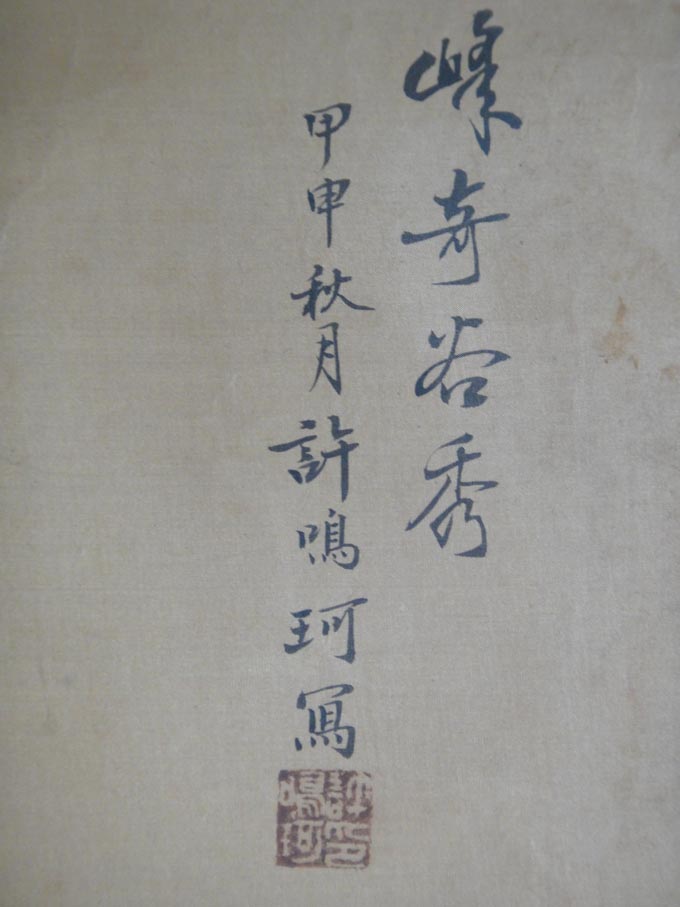 峰奇谷秀
甲申秋月許鳴珂寫
許鳴珂印